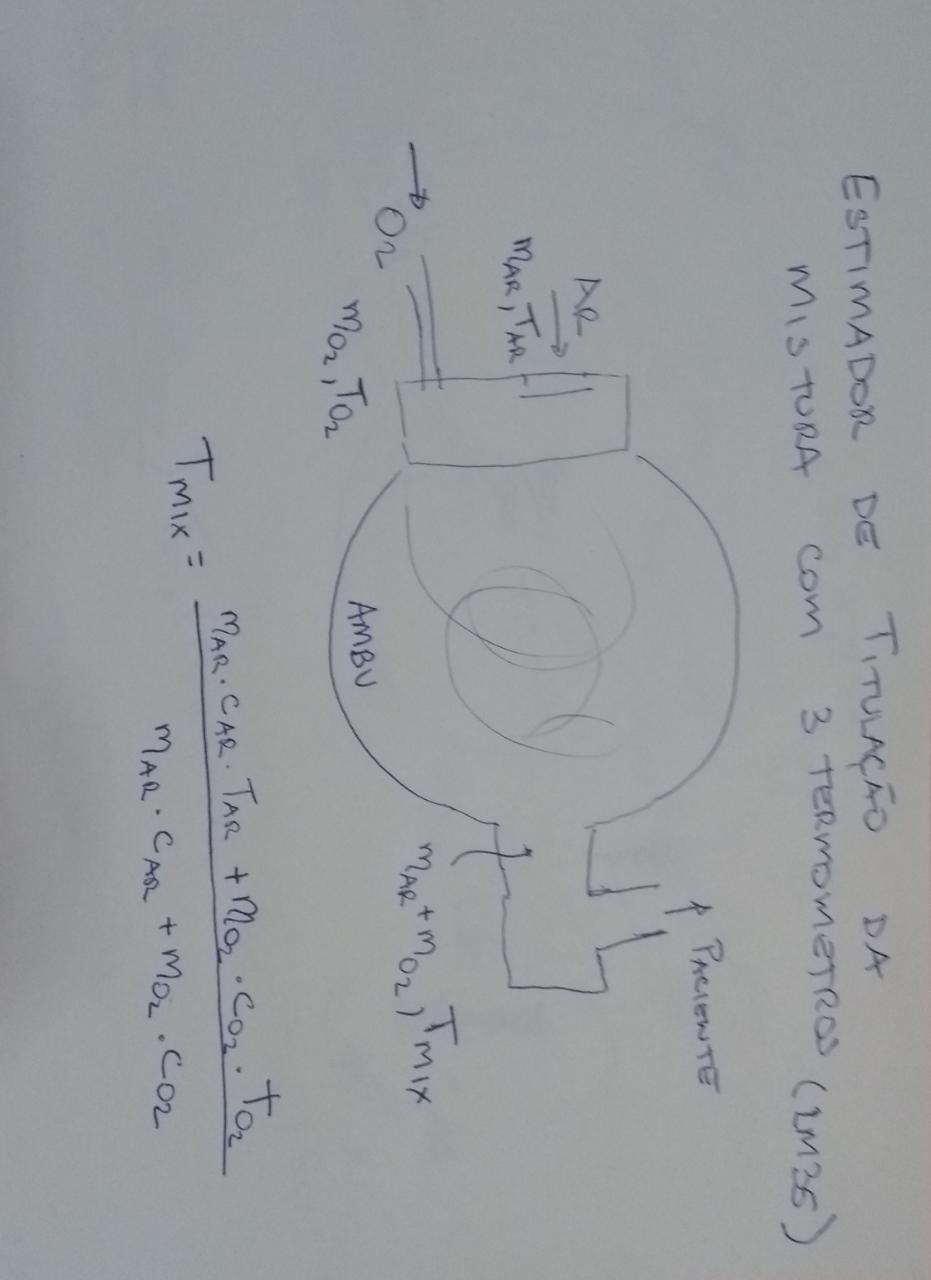 ESTIMADOR DE TITULAÇÃO DA
MISTURA COM 3 TERMOMETROS (LM35)
PACIENTE
AR
mAR, TAR
O2
mO2, TO2
mAR+mO2, TMIX
AMBU
TMIX = mAR.CAR.TAR + mO2.CO2.TO2
mAR.CAR + mO2.CO2